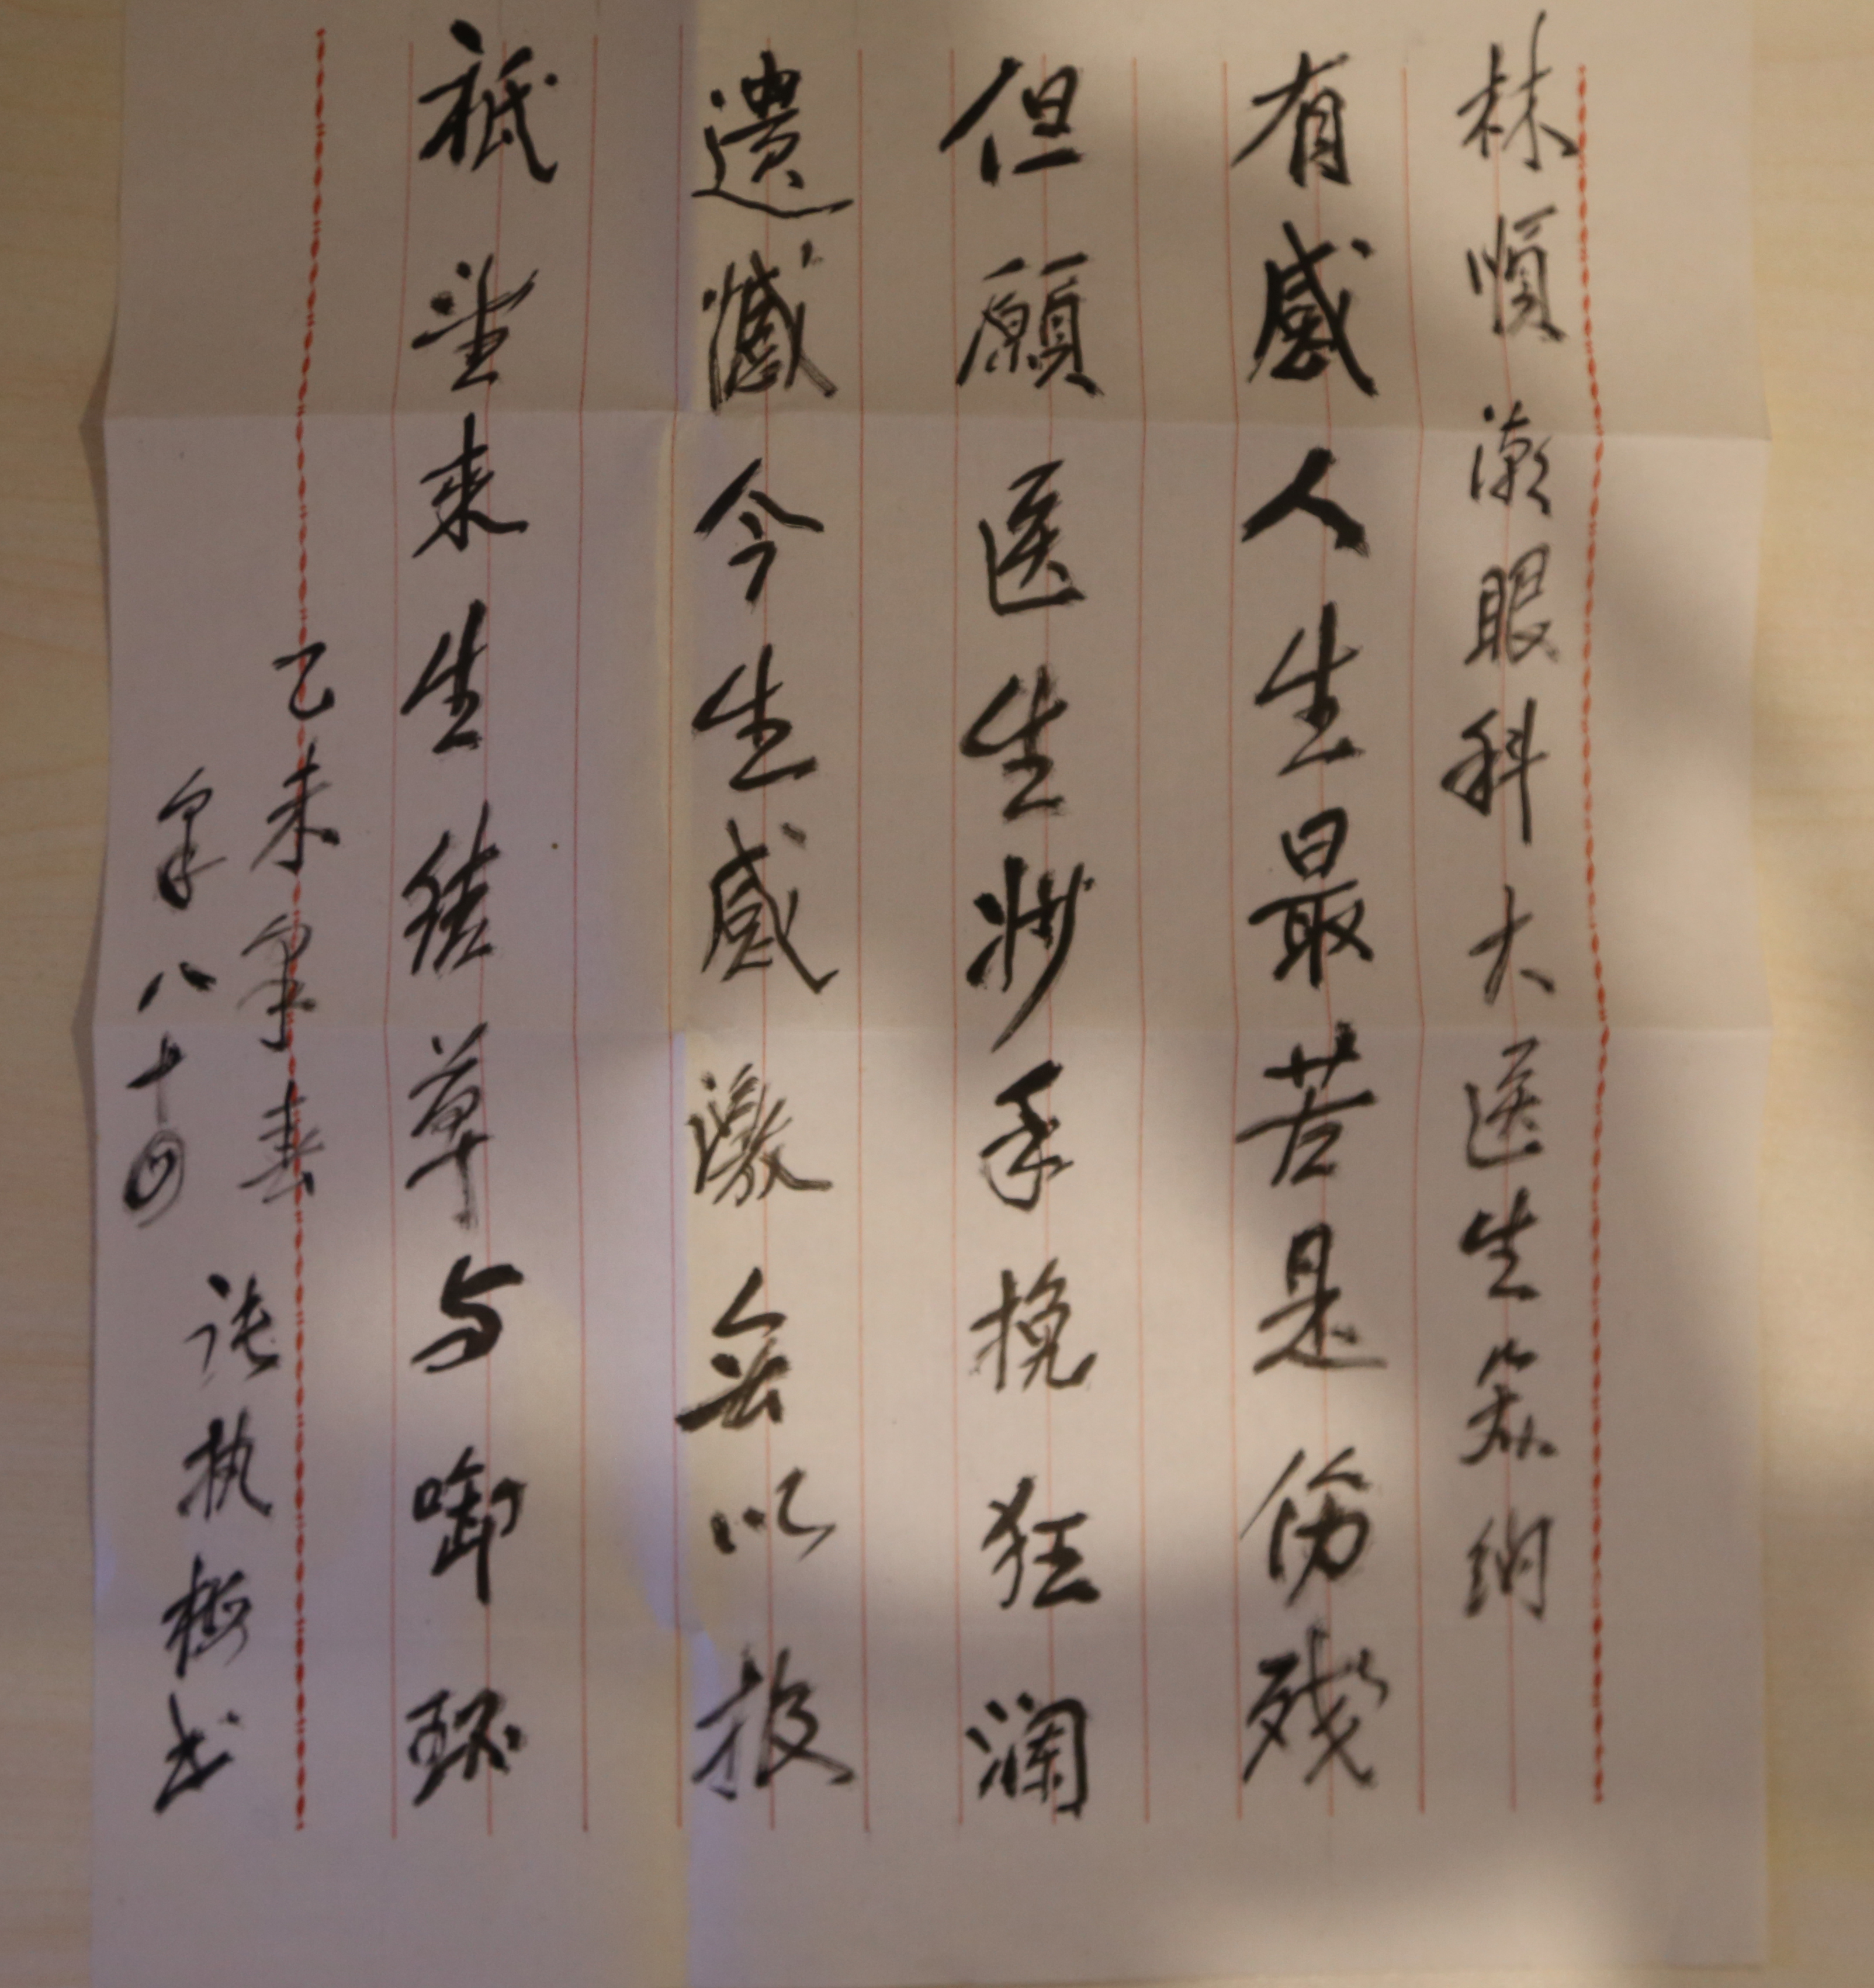 林順潮眼科大医生笑纳
有感人生最苦是伤残
但願医生妙手挽狂澜
遗憾今生感激无以报
祗望来生结草与啣环
乙未年春
年八十四
张执樞书